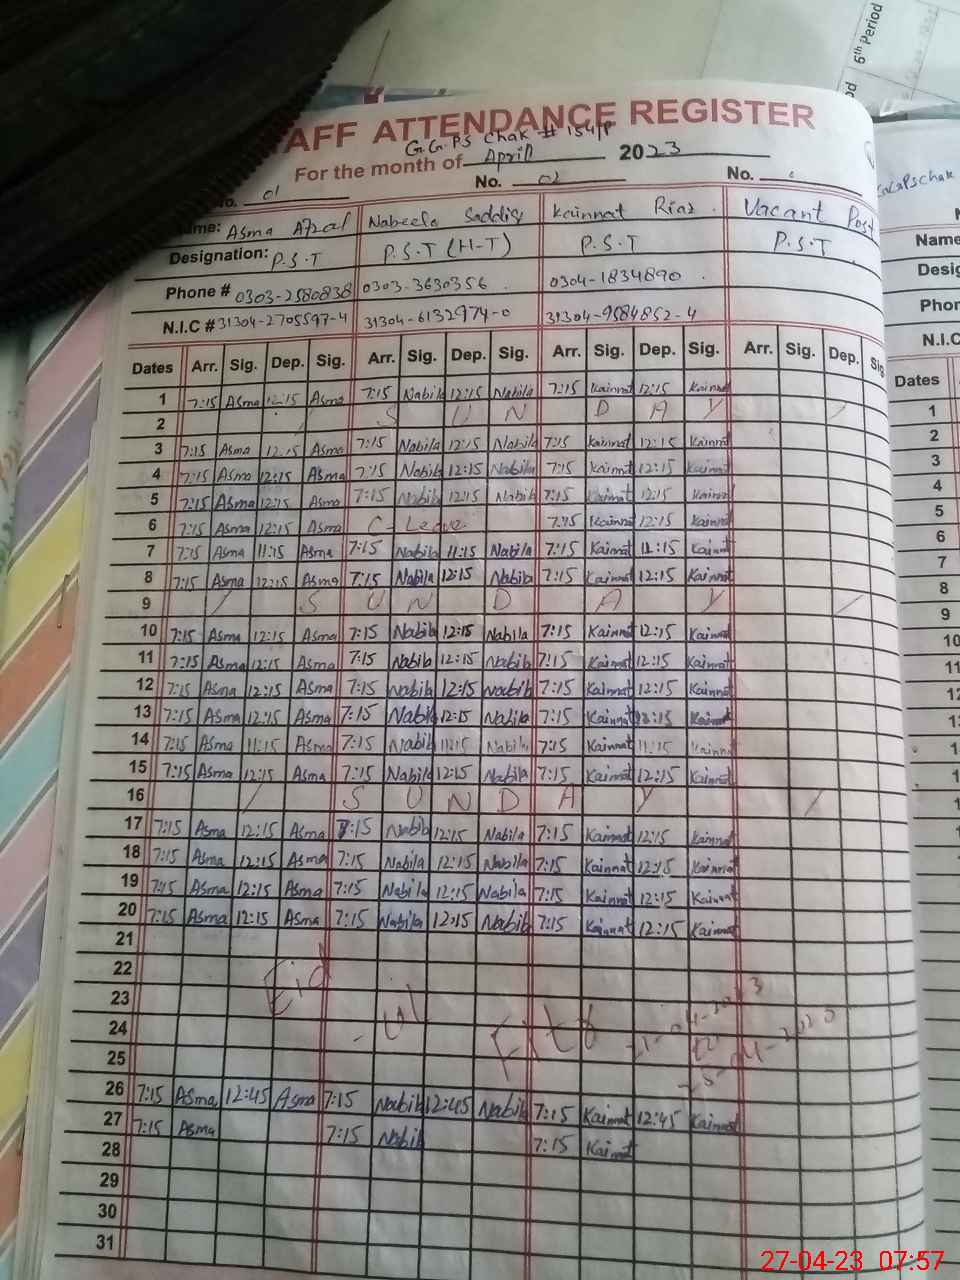 6th Period
AFF ATTENDANCE REGISTER
G.G.PS Chak # 154/P
For the month of April 2023
No. 01 No. 02 No.
Name: Asma Afzal Nabeela Saddiq Kainnat Riaz Vacant Post
Designation: P.S.T P.S.T (H-T) P.S.T P.S.T
Phone # 0303-2580838 0303-3630356 0304-1834890
N.I.C # 31304-2705597-4 31304-6132974-0 31304-9584852-4
Dates Arr. Sig. Dep. Sig. Arr. Sig. Dep. Sig. Arr. Sig. Dep. Sig. Arr. Sig. Dep. Sig
1 7:15 Asma 12:15 Asma 7:15 Nabila 12:15 Nabila 7:15 Kainnat 12:15 Kainnat
2 S U N D A Y
3 7:15 Asma 12:15 Asma 7:15 Nabila 12:15 Nabila 7:15 Kainnat 12:15 Kainnat
4 7:15 Asma 12:15 Asma 7:15 Nabila 12:15 Nabila 7:15 Kainnat 12:15 Kainnat
5 7:15 Asma 12:15 Asma 7:15 Nabila 12:15 Nabila 7:15 Kainnat 12:15 Kainnat
6 7:15 Asma 12:15 Asma C-Leave 7:15 Kainnat 12:15 Kainnat
7 7:15 Asma 11:15 Asma 7:15 Nabila 11:15 Nabila 7:15 Kainnat 11:15 Kainnat
8 7:15 Asma 12:15 Asma 7:15 Nabila 12:15 Nabila 7:15 Kainnat 12:15 Kainnat
9 S U N D A Y
10 7:15 Asma 12:15 Asma 7:15 Nabila 12:15 Nabila 7:15 Kainnat 12:15 Kainnat
11 7:15 Asma 12:15 Asma 7:15 Nabila 12:15 Nabila 7:15 Kainnat 12:15 Kainnat
12 7:15 Asma 12:15 Asma 7:15 Nabila 12:15 Nabila 7:15 Kainnat 12:15 Kainnat
13 7:15 Asma 12:15 Asma 7:15 Nabila 12:15 Nabila 7:15 Kainnat 12:15 Kainnat
14 7:15 Asma 11:15 Asma 7:15 Nabila 11:15 Nabila 7:15 Kainnat 11:15 Kainnat
15 7:15 Asma 12:15 Asma 7:15 Nabila 12:15 Nabila 7:15 Kainnat 12:15 Kainnat
16 S U N D A Y
17 7:15 Asma 12:15 Asma 7:15 Nabila 12:15 Nabila 7:15 Kainnat 12:15 Kainnat
18 7:15 Asma 12:15 Asma 7:15 Nabila 12:15 Nabila 7:15 Kainnat 12:15 Kainnat
19 7:15 Asma 12:15 Asma 7:15 Nabila 12:15 Nabila 7:15 Kainnat 12:15 Kainnat
20 7:15 Asma 12:15 Asma 7:15 Nabila 12:15 Nabila 7:15 Kainnat 12:15 Kainnat
21
22
23 Eid -ul Fitr 21-04-2023
24 to
25
26 7:15 Asma 12:45 Asma 7:15 Nabila 12:45 Nabila 7:15 Kainnat 12:45 Kainnat
27 7:15 Asma 7:15 Nabila 7:15 Kainnat
28
29
30
31
Name
Desig
Phon
N.I.C
Dates
1
2
3
4
5
6
7
8
9
10
11
12
27-04-23 07:57